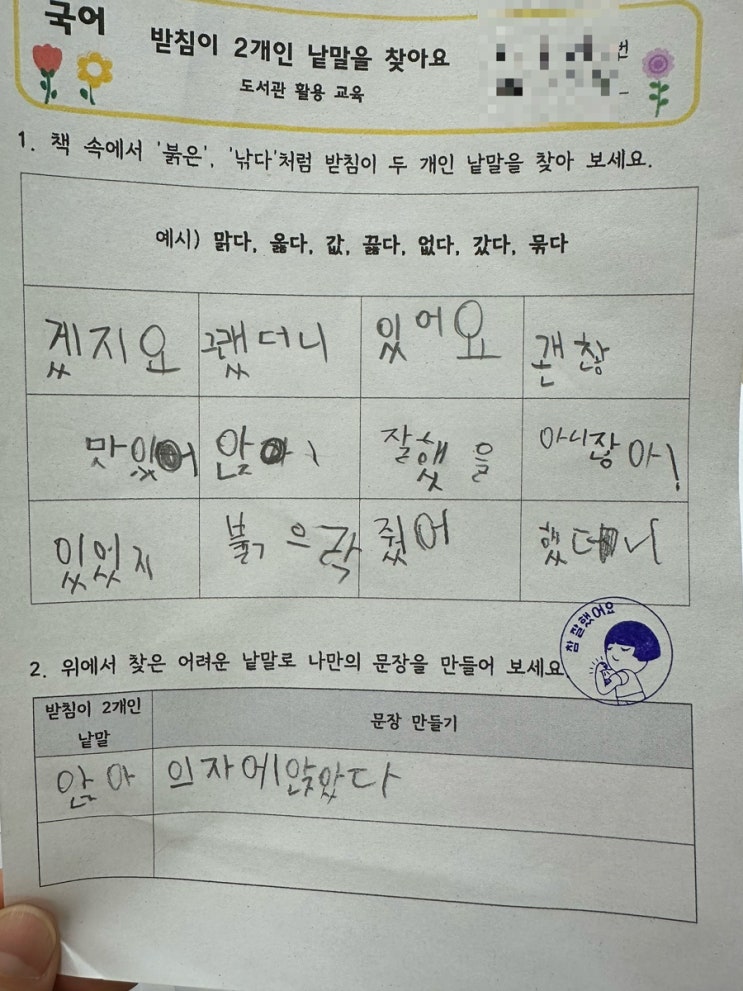 국어
받침이 2개인 낱말을 찾아요
도서관 활용 교육
1. 책 속에서 '붉은', '낚다'처럼 받침이 두 개인 낱말을 찾아 보세요.
예시) 맑다, 옳다, 값, 끓다, 없다, 갔다, 묶다
겠지요 그랬더니 있어요 괜찮
맛있어 앉아 잘했을 아니잖아!
있었지 붉은 줬어 했더니
참 잘했어요
2. 위에서 찾은 어려운 낱말로 나만의 문장을 만들어 보세요.
받침이 2개인 낱말 문장 만들기
앉아 의자에 앉았다